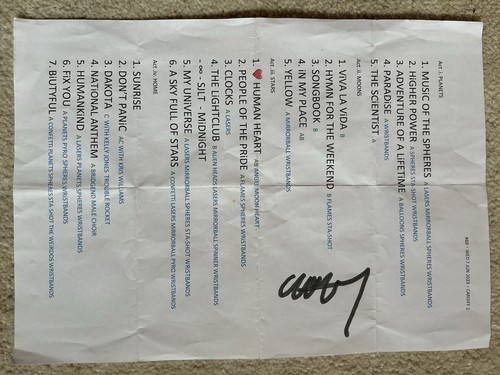 #89 - WED 7 JUN 2023 - CARDIFF 2
Act i. PLANETS
1. MUSIC OF THE SPHERES A LASERS MIRRORBALL SPHERES WRISTBANDS
2. HIGHER POWER A SPHERES STA-SHOT WRISTBANDS
3. ADVENTURE OF A LIFETIME A BALLOONS SPHERES WRISTBANDS
4. PARADISE A WRISTBANDS
5. THE SCIENTIST A
Act ii. MOONS
1. VIVA LA VIDA B
2. HYMN FOR THE WEEKEND B FLAMES STA-SHOT
3. SONGBOOK B
4. IN MY PLACE AB
5. YELLOW A MIRRORBALL WRISTBANDS
Act iii. STARS
1. ❤ HUMAN HEART MOON HEART
2. PEOPLE OF THE PRIDE A FLAMES SPHERES WRISTBANDS
3. CLOCKS A LASERS
4. THE LIGHTCLUB B ALIEN HEADS LASERS MIRRORBALL SPINNER WRISTBANDS
- ∞ - SLIT - MIDNIGHT
5. MY UNIVERSE A LASERS MIRRORBALL SPHERES STA-SHOT WRISTBANDS
6. A SKY FULL OF STARS A CONFETTI LASERS MIRRORBALL PYRO WRISTBANDS
Act iv. HOME
1. SUNRISE
2. DON'T PANIC AC WITH KRIS WILLIAMS
3. DAKOTA C WITH KELLY JONES TROUBLE ROCKET
4. NATIONAL ANTHEM A BRIDGEND MALE CHOIR
5. HUMANKIND A LASERS PLANETS SPHERES WRISTBANDS
6. FIX YOU A PLANETS PYRO SPHERES WRISTBANDS
7. BIUTYFUL A CONFETTI PLANETS SPHERES STA-SHOT THE WEIRDOS WRISTBANDS